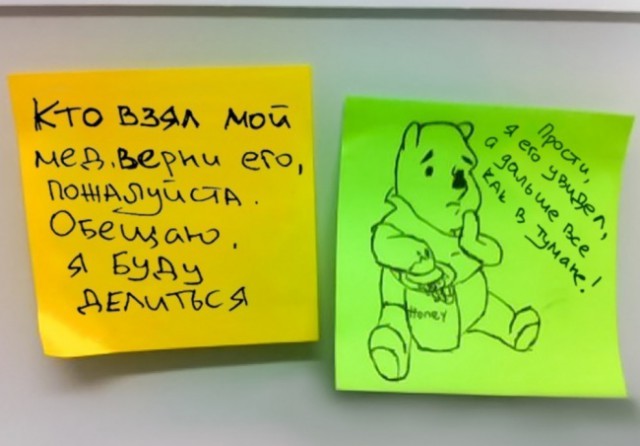 Кто взял мой
мед.верни его,
пожалуйста.
Обещаю,
я буду
делиться
Прости,
я его увидел,
а дальше все
как в тумане!
Honey